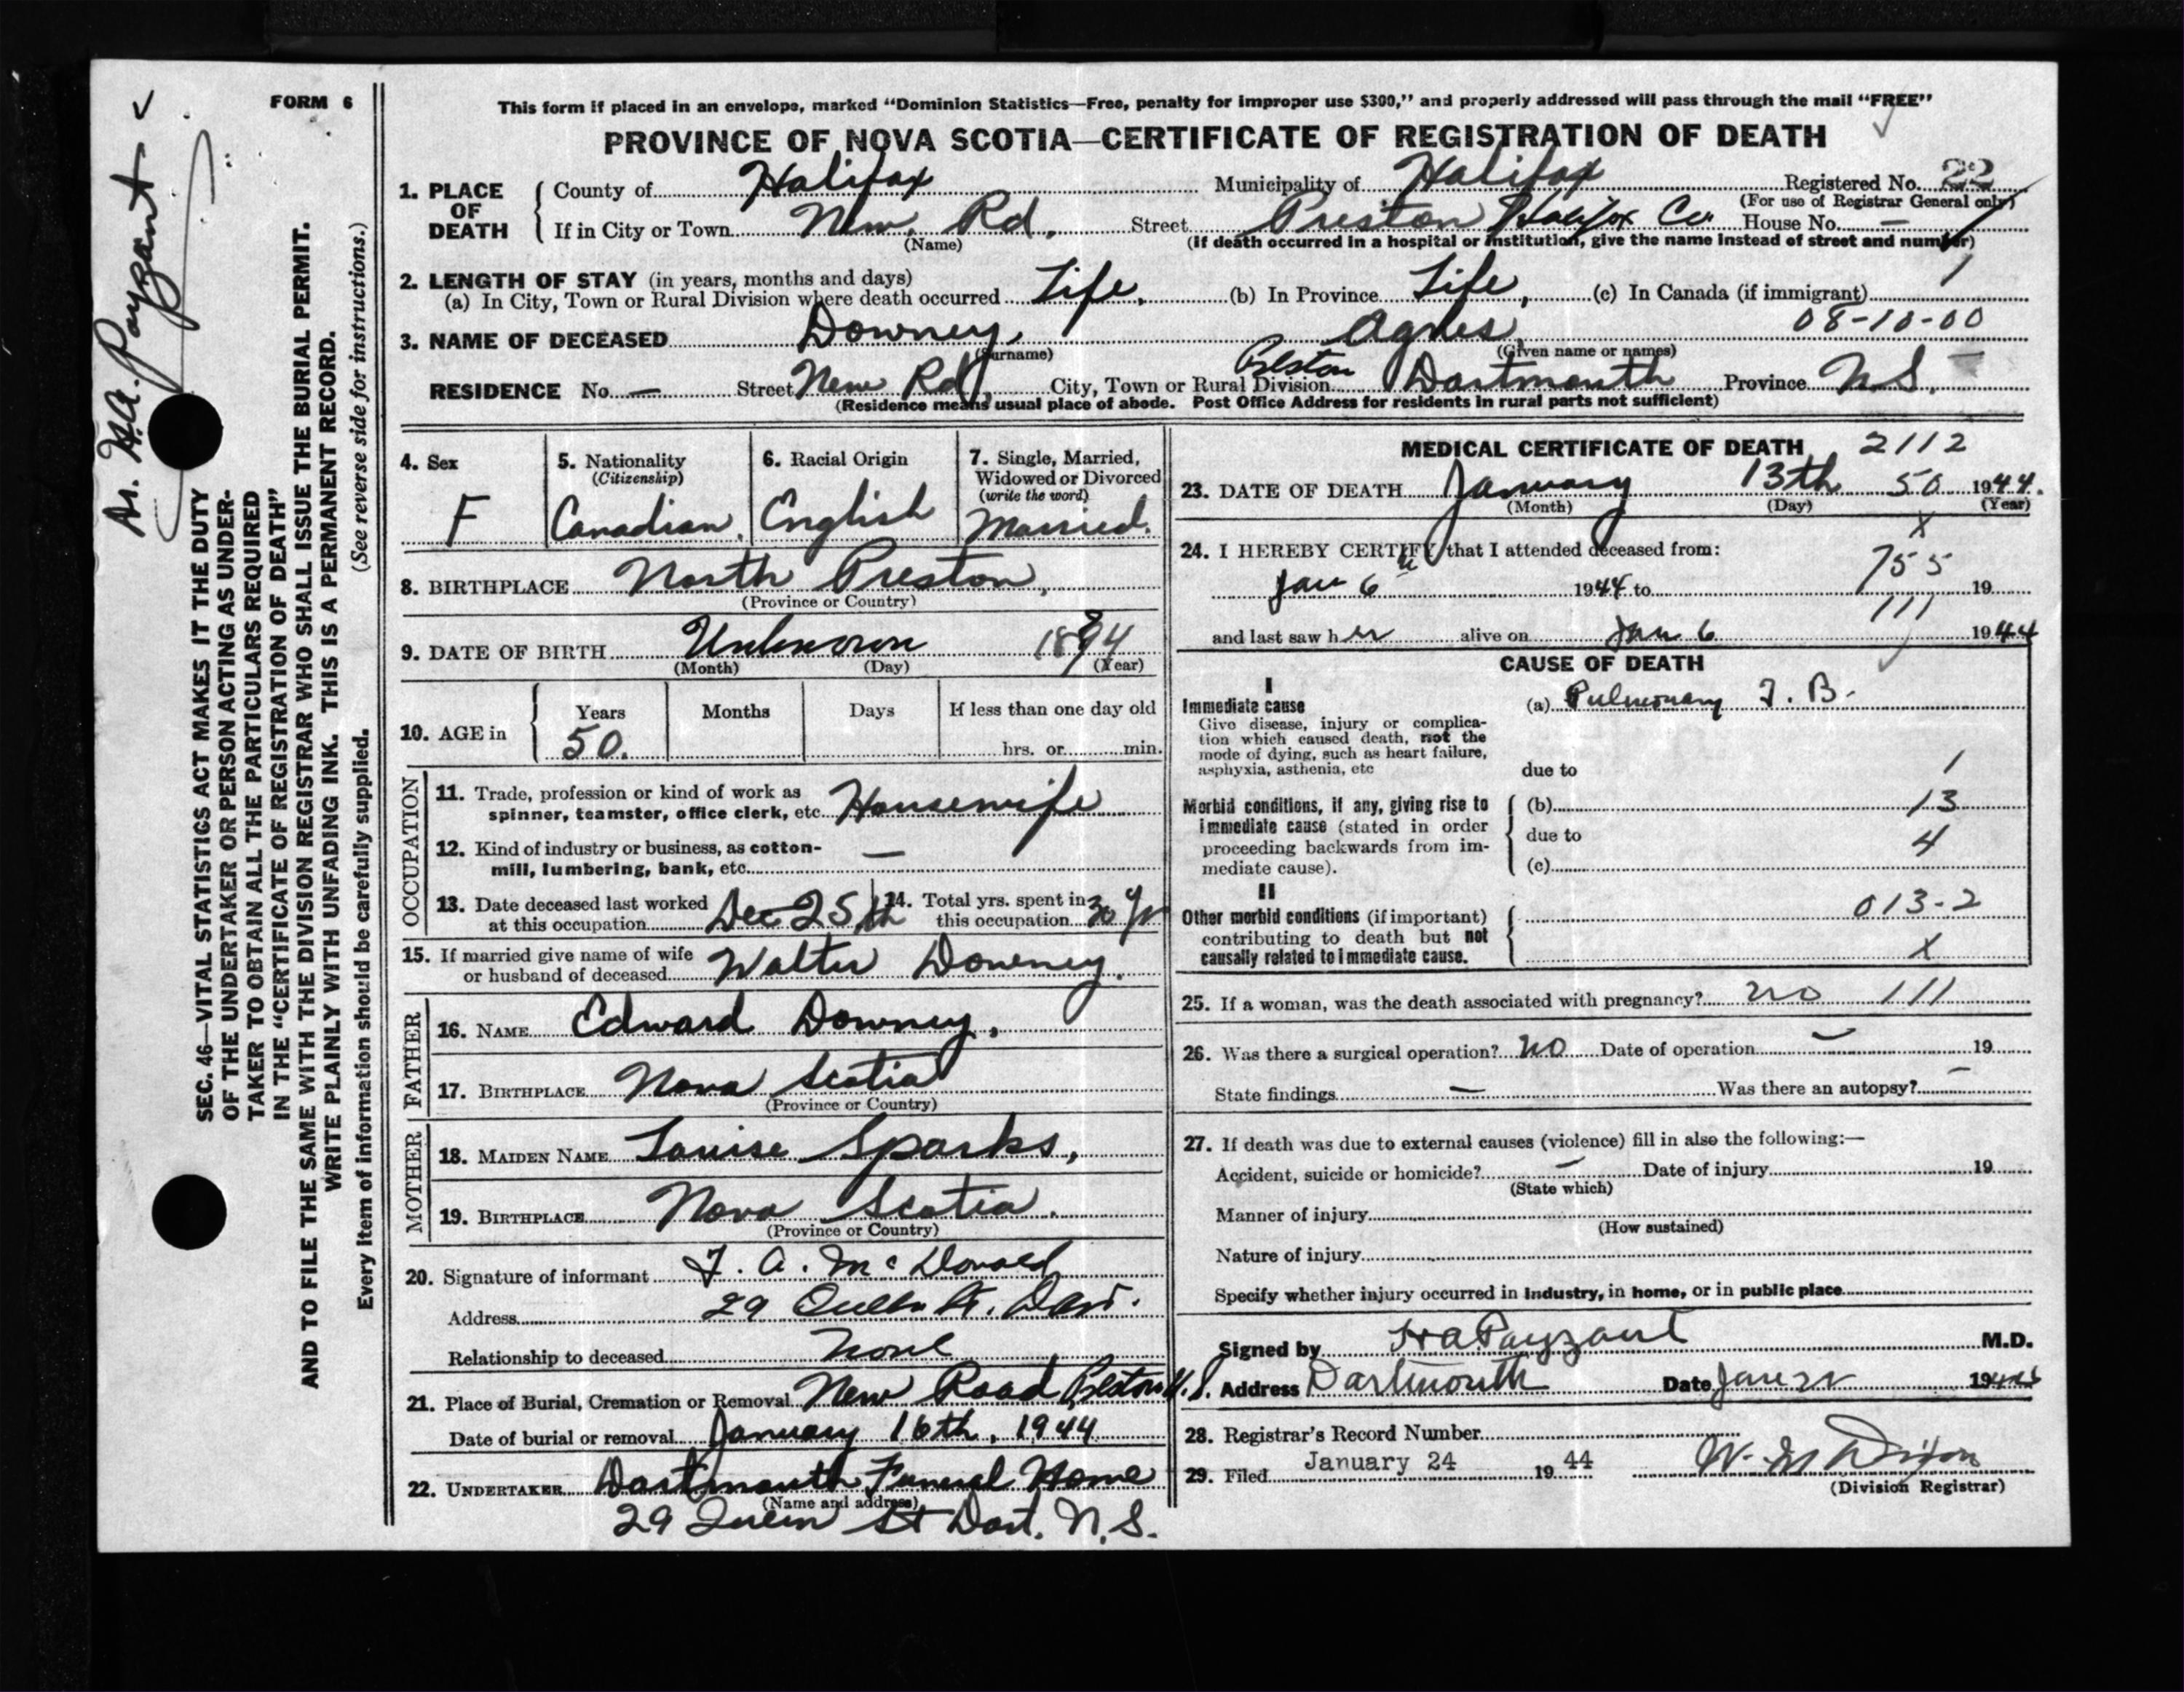 FORM 6
This form if placed in an envelope, marked "Dominion Statistics—Free, penalty for improper use $300," and properly addressed will pass through the mail "FREE"
PROVINCE OF NOVA SCOTIA—CERTIFICATE OF REGISTRATION OF DEATH
1. PLACE OF DEATH County of Halifax Municipality of Halifax Registered No. 22
(For use of Registrar General only)
If in City or Town New Rd. Street Preston Halifax Co House No. —
(Name) (If death occurred in a hospital or institution, give the name instead of street and number)
2. LENGTH OF STAY (in years, months and days)
(a) In City, Town or Rural Division where death occurred Life, (b) In Province Life, (c) In Canada (if immigrant) 1
08-10-00
3. NAME OF DECEASED Downey, Agnes
(Surname) (Given name or names)
RESIDENCE No. — Street New Rd, City, Town or Rural Division Preston Dartmouth Province N.S.
(Residence means usual place of abode. Post Office Address for residents in rural parts not sufficient)
4. Sex
F
5. Nationality
(Citizenship)
Canadian.
6. Racial Origin
English
7. Single, Married,
Widowed or Divorced
(write the word)
Married.
8. BIRTHPLACE North Preston,
(Province or Country)
9. DATE OF BIRTH Unknown 1894
(Month) (Day) (Year)
10. AGE in Years Months Days If less than one day old
50. hrs. or min.
OCCUPATION
11. Trade, profession or kind of work as
spinner, teamster, office clerk, etc. Housewife
12. Kind of industry or business, as cotton-
mill, lumbering, bank, etc. —
13. Date deceased last worked
at this occupation Dec 25th
14. Total yrs. spent in
this occupation 30 yr
15. If married give name of wife
or husband of deceased Walter Downey.
FATHER
16. NAME Edward Downey,
17. BIRTHPLACE Nova Scotia
(Province or Country)
MOTHER
18. MAIDEN NAME Louise Sparks,
19. BIRTHPLACE Nova Scotia.
(Province or Country)
20. Signature of informant F. A. McDonald
Address 29 Queen St. Dart.
Relationship to deceased None
21. Place of Burial, Cremation or Removal New Road Preston N.S.
Date of burial or removal January 16th, 1944
22. UNDERTAKER Dartmouth Funeral Home
(Name and address)
29 Queen St Dart. N.S.
MEDICAL CERTIFICATE OF DEATH 2112
23. DATE OF DEATH January 13th 50 1944.
(Month) (Day) (Year)
X
24. I HEREBY CERTIFY that I attended deceased from:
Jan 6th 1944 to 755 19
111
and last saw her alive on Jan 6 1944
CAUSE OF DEATH
I
Immediate cause
Give disease, injury or complica-
tion which caused death, not the
mode of dying, such as heart failure,
asphyxia, asthenia, etc
(a) Pulmonary T. B.
due to 1
Morbid conditions, if any, giving rise to
immediate cause (stated in order
proceeding backwards from im-
mediate cause).
(b) 13
due to 4
(c)
II
Other morbid conditions (if important)
contributing to death but not
causally related to immediate cause.
013-2
X
25. If a woman, was the death associated with pregnancy? no 111
26. Was there a surgical operation? no Date of operation — 19
State findings — Was there an autopsy? —
27. If death was due to external causes (violence) fill in also the following:—
Accident, suicide or homicide? — Date of injury 19
(State which)
Manner of injury
(How sustained)
Nature of injury
Specify whether injury occurred in industry, in home, or in public place
Signed by H A Payzant M.D.
Address Dartmouth Date Jan 1944
28. Registrar's Record Number
29. Filed January 24 19 44
(Division Registrar)
Dr. H.A. Payzant
SEC. 46—VITAL STATISTICS ACT MAKES IT THE DUTY
OF THE UNDERTAKER OR PERSON ACTING AS UNDER-
TAKER TO OBTAIN ALL THE PARTICULARS REQUIRED
IN THE "CERTIFICATE OF REGISTRATION OF DEATH"
AND TO FILE THE SAME WITH THE DIVISION REGISTRAR WHO SHALL ISSUE THE BURIAL PERMIT.
WRITE PLAINLY WITH UNFADING INK. THIS IS A PERMANENT RECORD.
Every item of information should be carefully supplied. (See reverse side for instructions.)